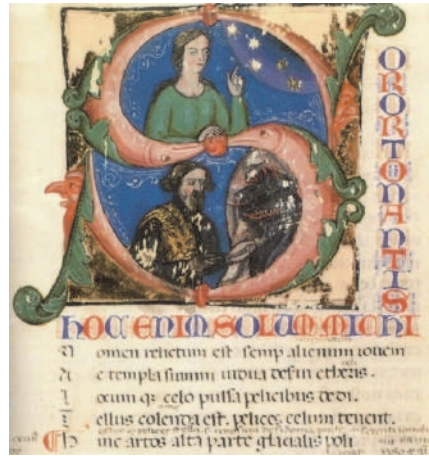 S
ORORTONANTIS
HOC ENIM SOLUM MICHI
N omen relictum est semp alienum iouem
A c templa summi uidua deserui etheris.
L ocum q; celo pulsa pelicibus dedi.
T ellus colenda est. pelices celum tenent.
H inc artos alta parte glacialis poli